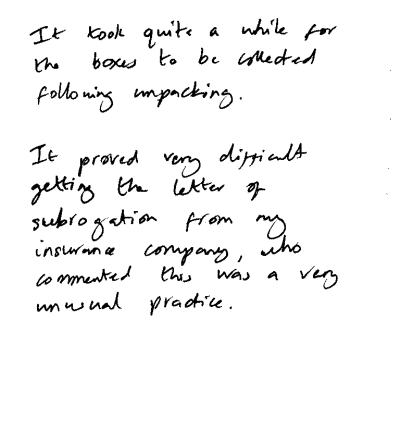 It took quite a while for
the boxes to be collected
following unpacking.
It proved very difficult
getting the letter of
subrogation from my
insurance company, who
commented this was a very
unusual practice.